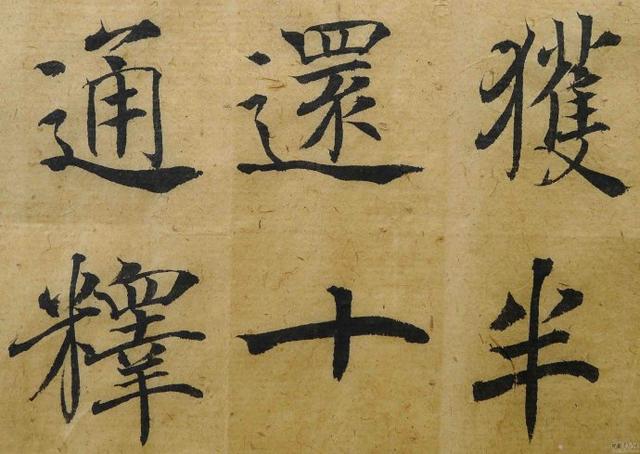 獲半
還十
通釋